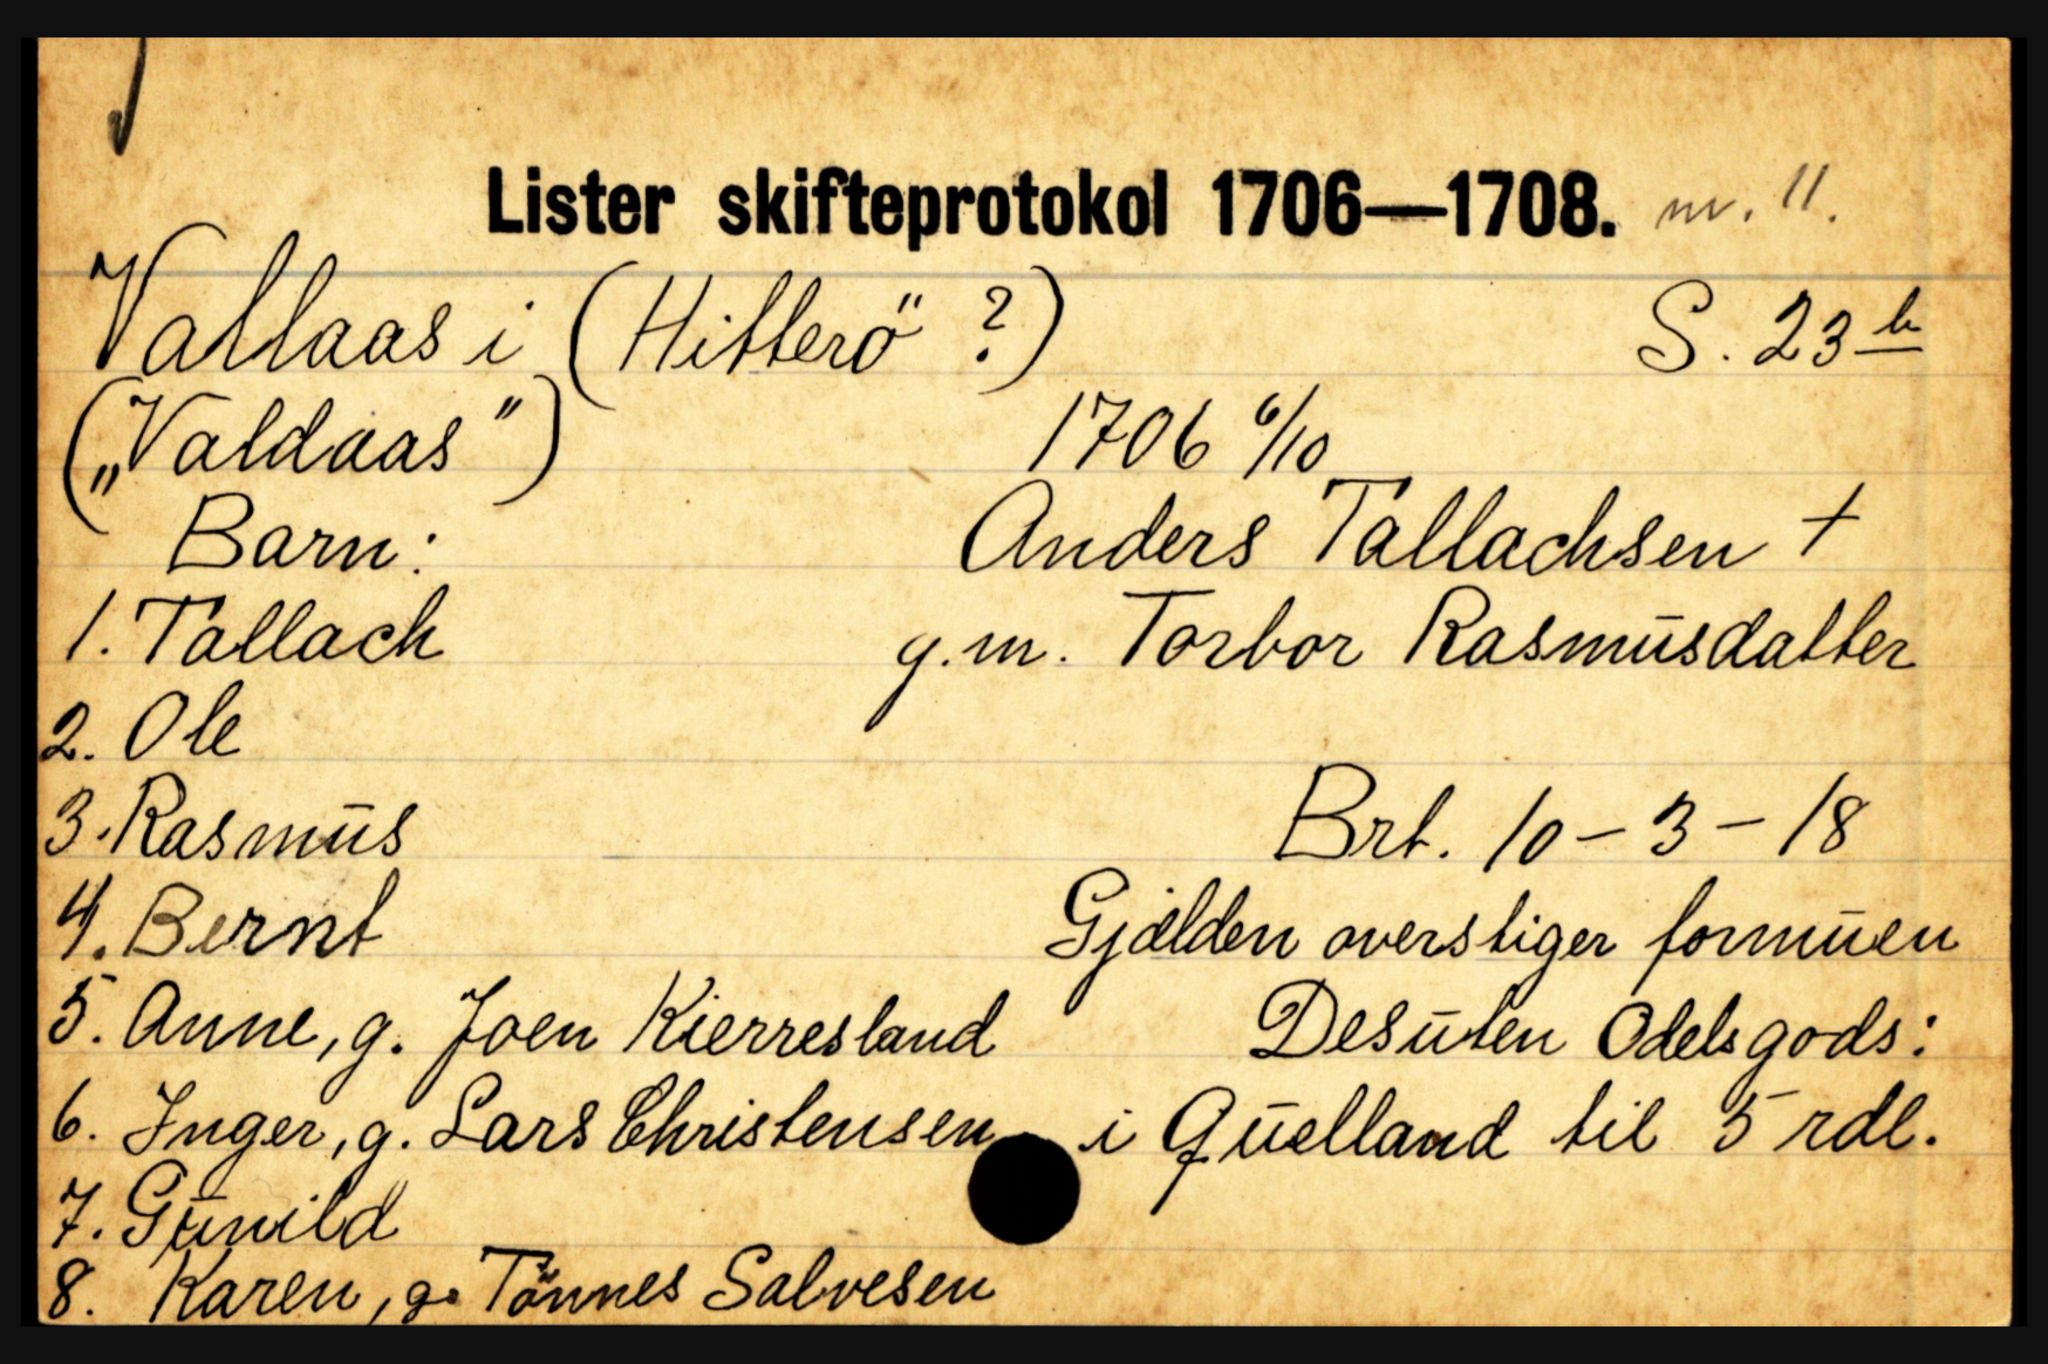 Lister skifteprotokol 1706—1708. nr. 11.
Vatlaas i (Hitterö ?) S. 23 b
(„Valdaas") 1706 6/10
Barn: Anders Tallachsen +
1. Tallach g.m. Torbor Rasmusdatter
2. Ole
3. Rasmus Brt. 10-3-18
4. Bernt Gjælden overstiger formuen
5. Anne, g. Joen Kierresland Desuten Odelsgods:
6. Inger, g. Lars Christensen i Quelland til 5 rdl.
7. Gunild
8. Karen, g. Tönnes Salvesen